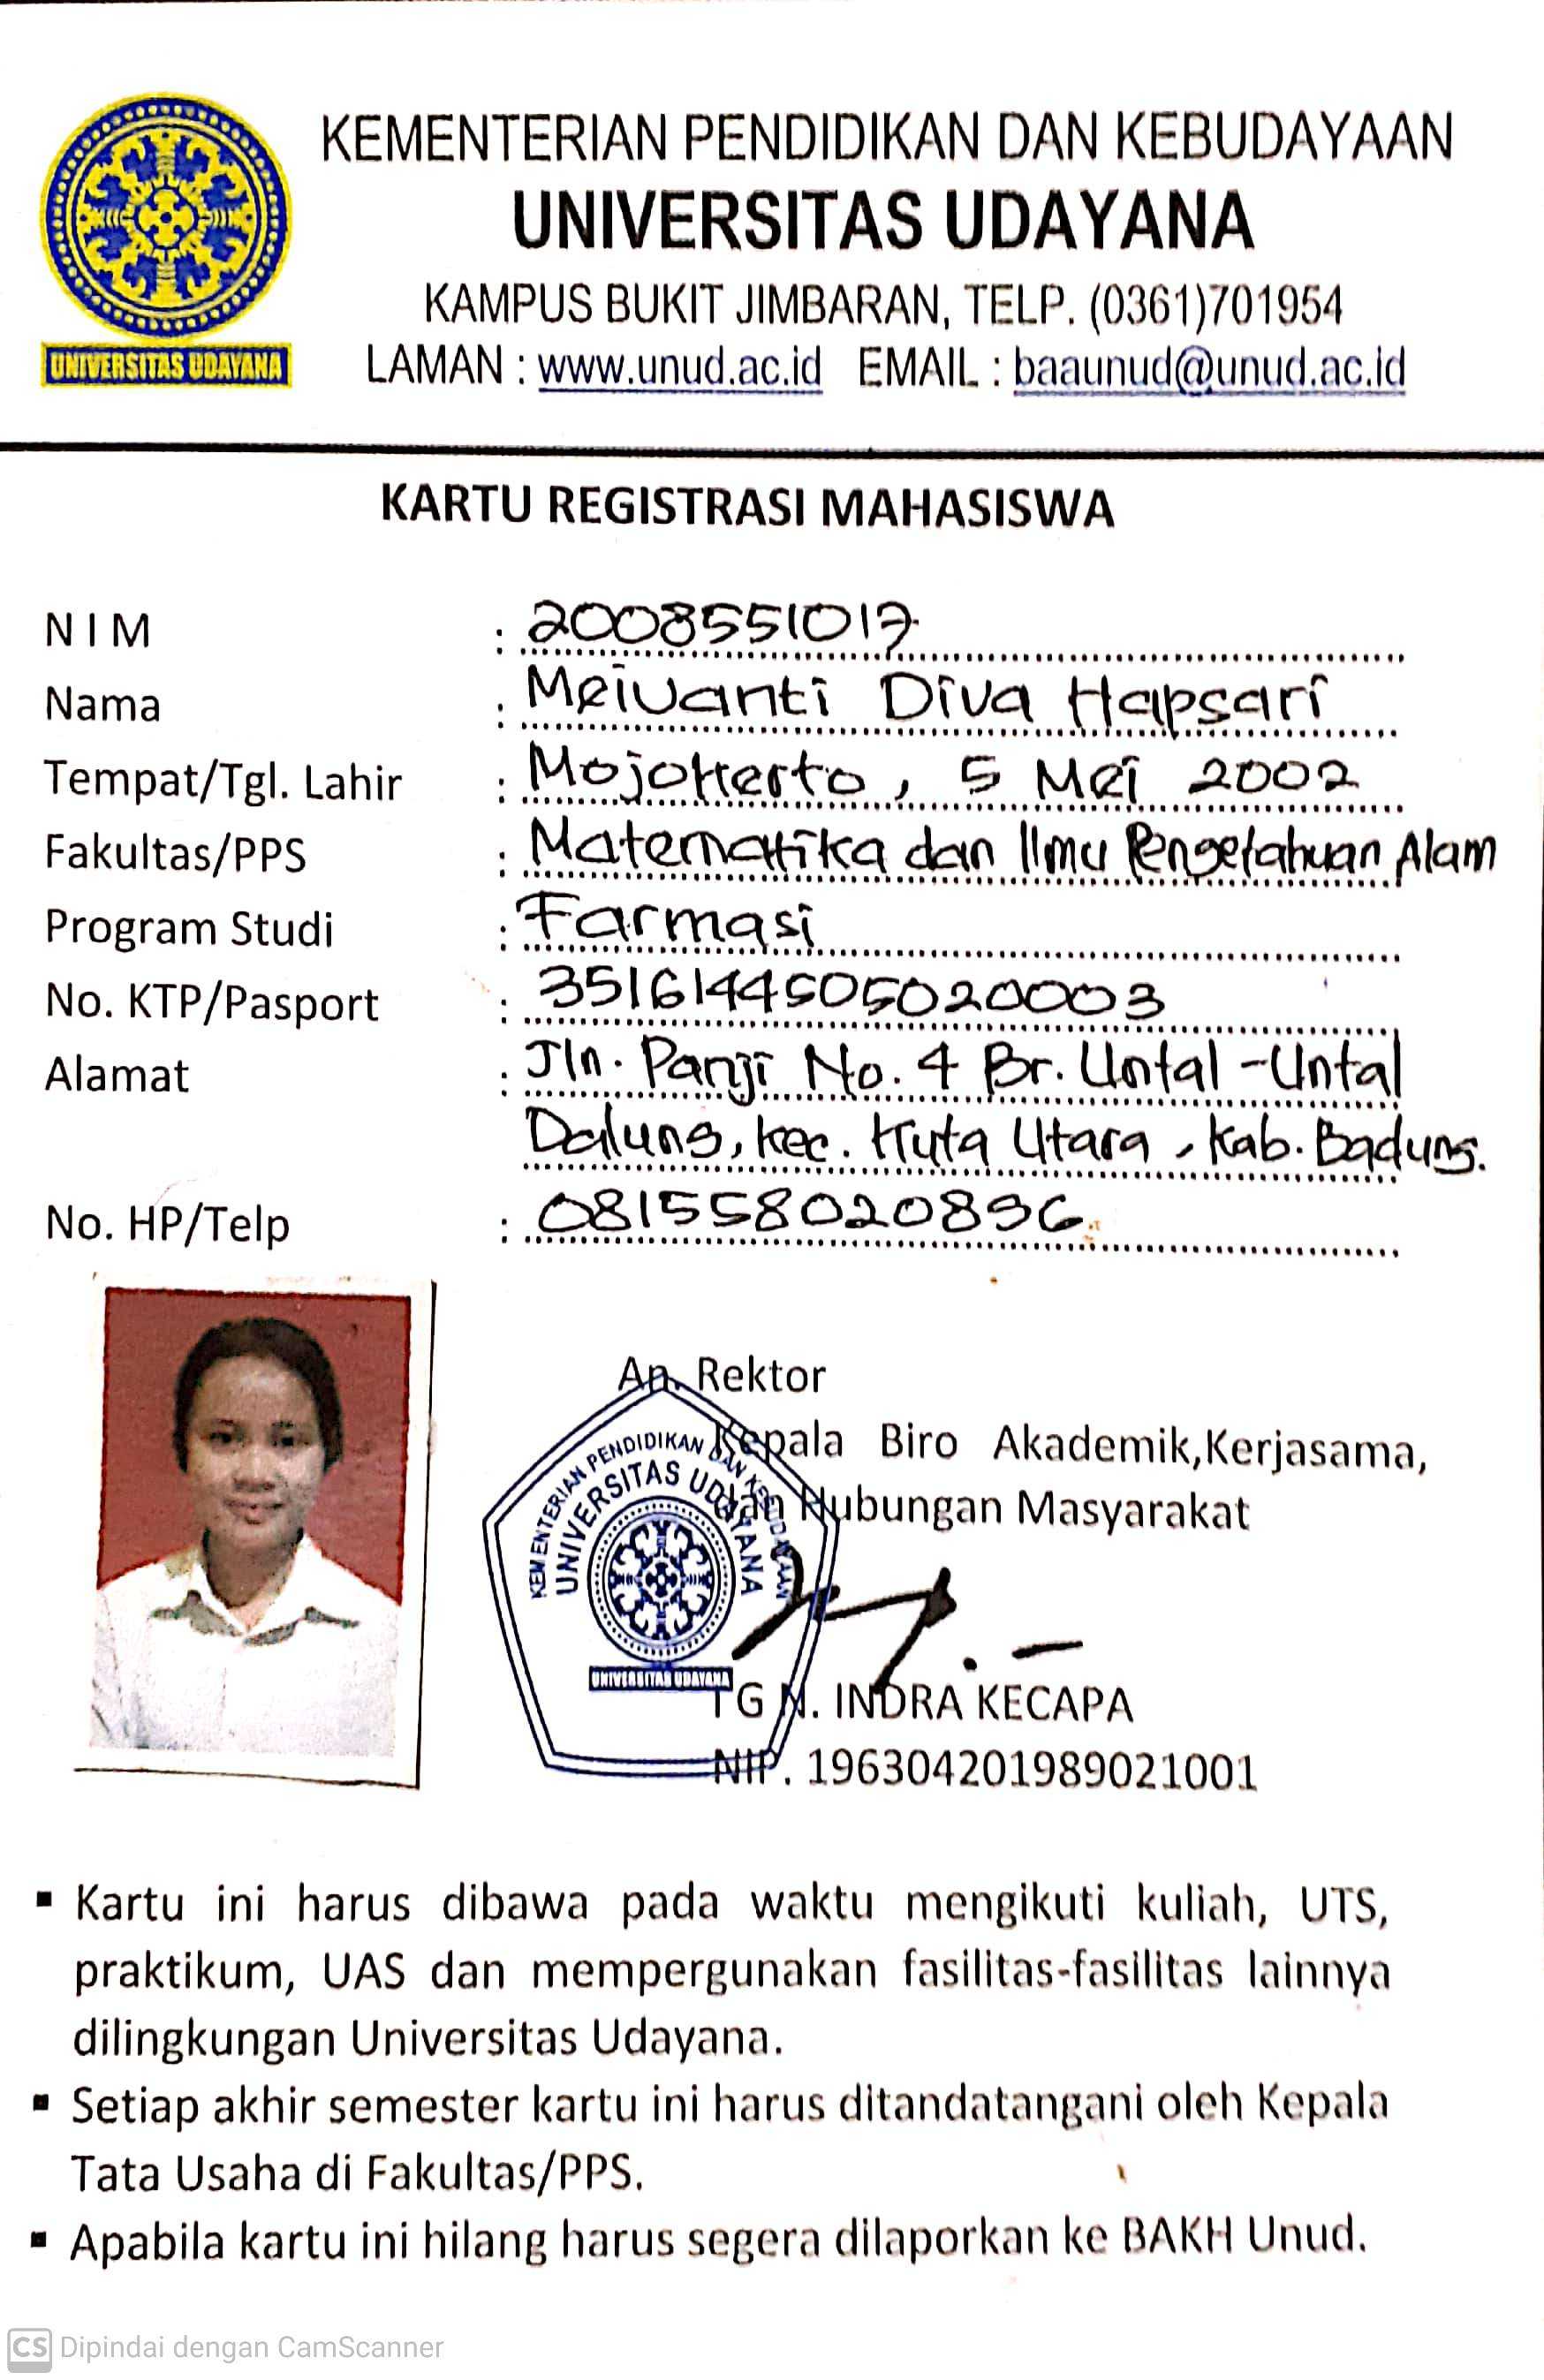 KEMENTERIAN PENDIDIKAN DAN KEBUDAYAAN
UNIVERSITAS UDAYANA
KAMPUS BUKIT JIMBARAN, TELP. (0361)701954
LAMAN : www.unud.ac.id EMAIL : baaunud@unud.ac.id
UNIVERSITAS UDAYANA
KARTU REGISTRASI MAHASISWA
NIM : 2008551017
Nama : Meivanti Diva Hapsari
Tempat/Tgl. Lahir : Mojokerto, 5 Mei 2002
Fakultas/PPS : Matematika dan Ilmu Pengetahuan Alam
Program Studi : Farmasi
No. KTP/Pasport : 3516144505020003
Alamat : Jln. Panji No. 4 Br. Untal-Untal
Dalung, Kec. Kuta Utara, Kab. Badung.
No. HP/Telp : 081558020896
An. Rektor
Kepala Biro Akademik,Kerjasama,
dan Hubungan Masyarakat
KEMENTERIAN PENDIDIKAN DAN KEBUDAYAAN
UNIVERSITAS UDAYANA
UNIVERSITAS UDAYANA
TG N. INDRA KECAPA
NIP. 196304201989021001
▪ Kartu ini harus dibawa pada waktu mengikuti kuliah, UTS,
praktikum, UAS dan mempergunakan fasilitas-fasilitas lainnya
dilingkungan Universitas Udayana.
▪ Setiap akhir semester kartu ini harus ditandatangani oleh Kepala
Tata Usaha di Fakultas/PPS.
▪ Apabila kartu ini hilang harus segera dilaporkan ke BAKH Unud.
CS Dipindai dengan CamScanner